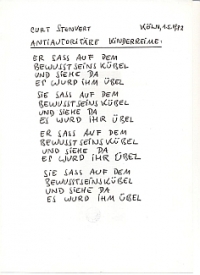 CURT STENVERT KÖLN, 1.5.1972
ANTIAUTORITÄRE KINDERREIME:
ER SASS AUF DEM
BEWUSSTSEINS KÜBEL
UND SIEHE DA
ES WURD IHM ÜBEL
SIE SASS AUF DEM
BEWUSSTSEINSKÜBEL
UND SIEHE DA
ES WURD IHR ÜBEL
ER SASS AUF DEM
BEWUSSTSEINSKÜBEL
UND SIEHE DA
ES WURD IHR ÜBEL
SIE SASS AUF DEM
BEWUSSTSEINSKÜBEL
UND SIEHE DA
ES WURD IHM ÜBEL